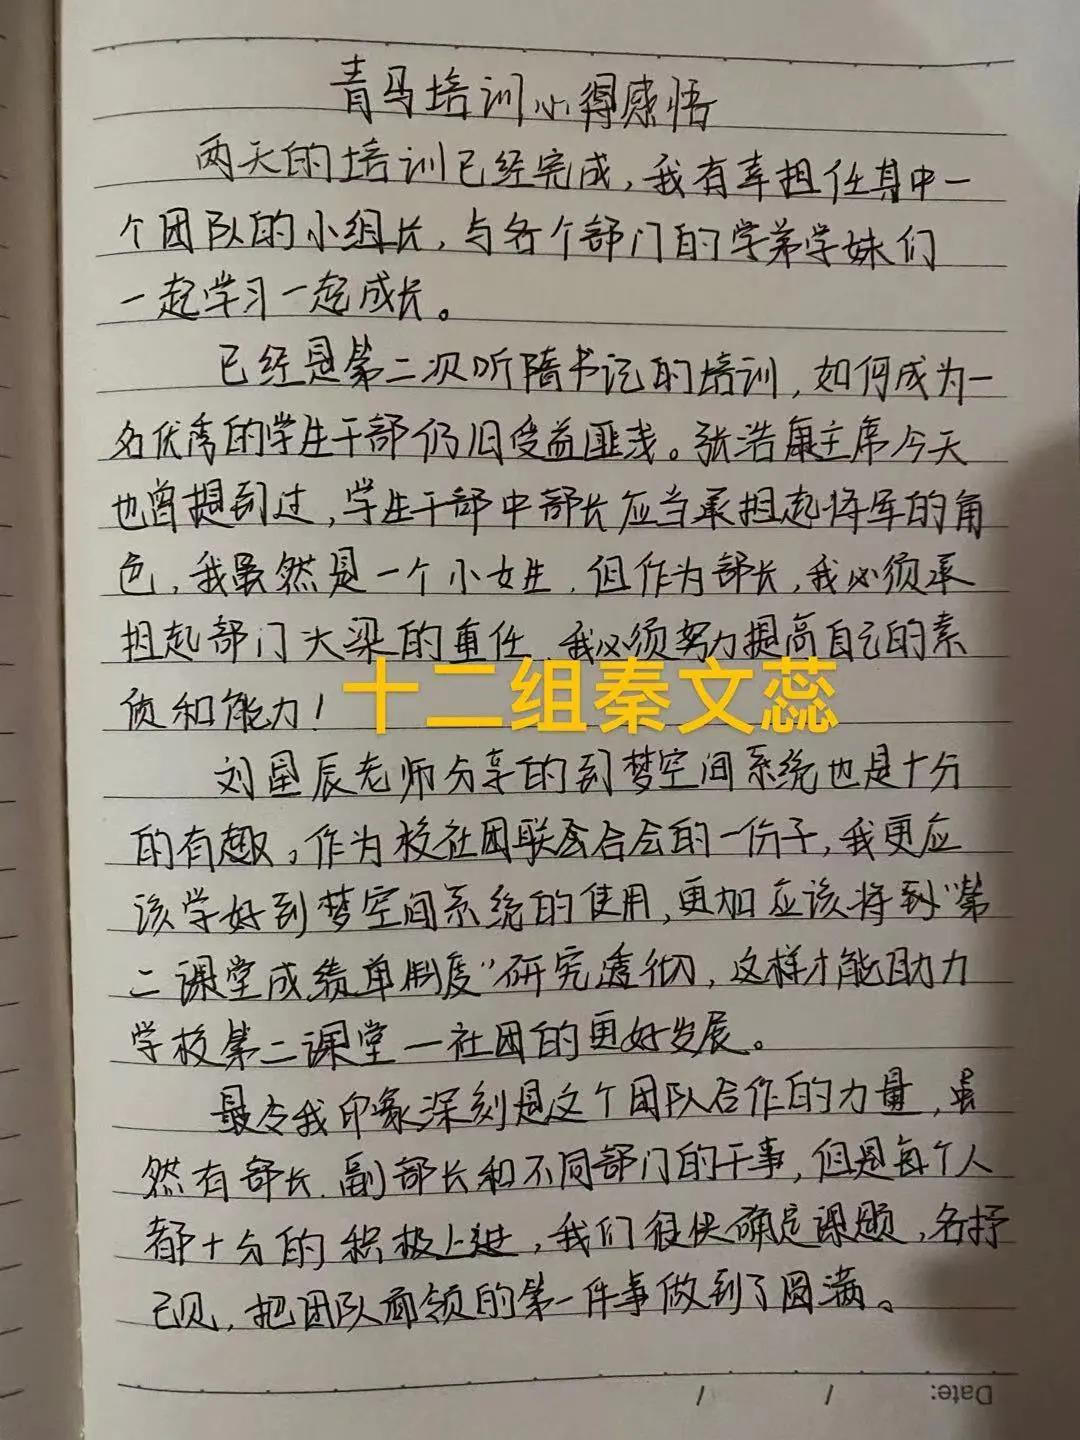 青马培训心得感悟
两天的培训已经完成,我有幸担任其中一
个团队的小组长,与各个部门的学弟学妹们
一起学习一起成长。
已经是第二次听隋书记的培训,如何成为一
名优秀的学生干部仍旧受益匪浅。张浩康主席今天
也曾提到过,学生干部中部长应当承担起将军的角
色,我虽然是一个小女生,但作为部长,我必须承
担起部门大梁的重任,我必须努力提高自己的素
质和能力!
十二组秦文蕊
刘星辰老师分享的到梦空间系统也是十分
的有趣。作为校社团联合会的一份子,我更应
该学好到梦空间系统的使用,更加应该将到“第
二课堂成绩单制度”研究透彻,这样才能助力
学校第二课堂一社团的更好发展。
最令我印象深刻是这个团队合作的力量,虽
然有部长、副部长和不同部门的干事,但是每个人
都十分的积极上进,我们很快确定课题,各抒
己见,把团队布领的第一件事做到了圆满。
Date:
/ /